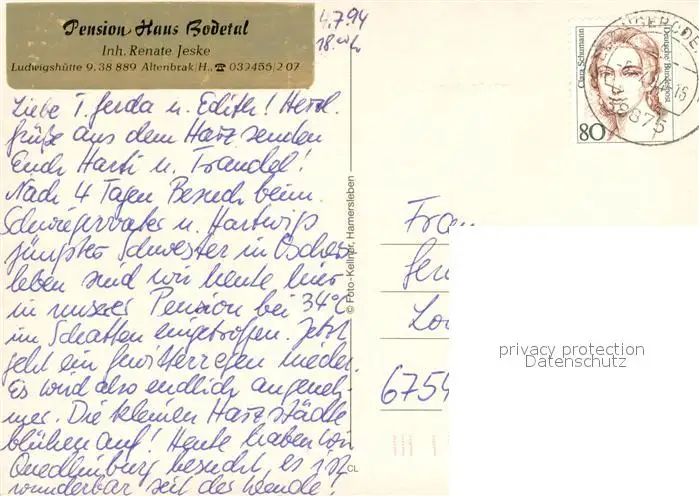 Pension Haus Bodetal
Inh. Renate Jeske
Ludwigshütte 9, 38 889 Altenbrak/H., ☎ 039455/2 07
4.7.94
18.00 h
Liebe T. Gerda u. Edith! Herzl.
Grüße aus dem Harz senden
Euch Harti u. Traudel!
Nach 4 Tagen Besuch beim
Schwiegervater u. Hartwigs
jüngster Schwester in Oschers-
leben sind wir heute hier
in unserer Pension bei 34°C
im Schatten eingetroffen. Jetzt
geht ein Gewitterregen nieder.
Es wird also endlich angeneh-
mer. Die kleinen Harzstädte
blühen auf! Heute haben wir
Quedlinburg besucht, es ist
wunderbar seit der Wende!
© Foto-Kellner, Hamersleben
CL
Clara Schumann
Deutsche Bundespost
80
38875
Frau
Ger
675
privacy protection
Datenschutz